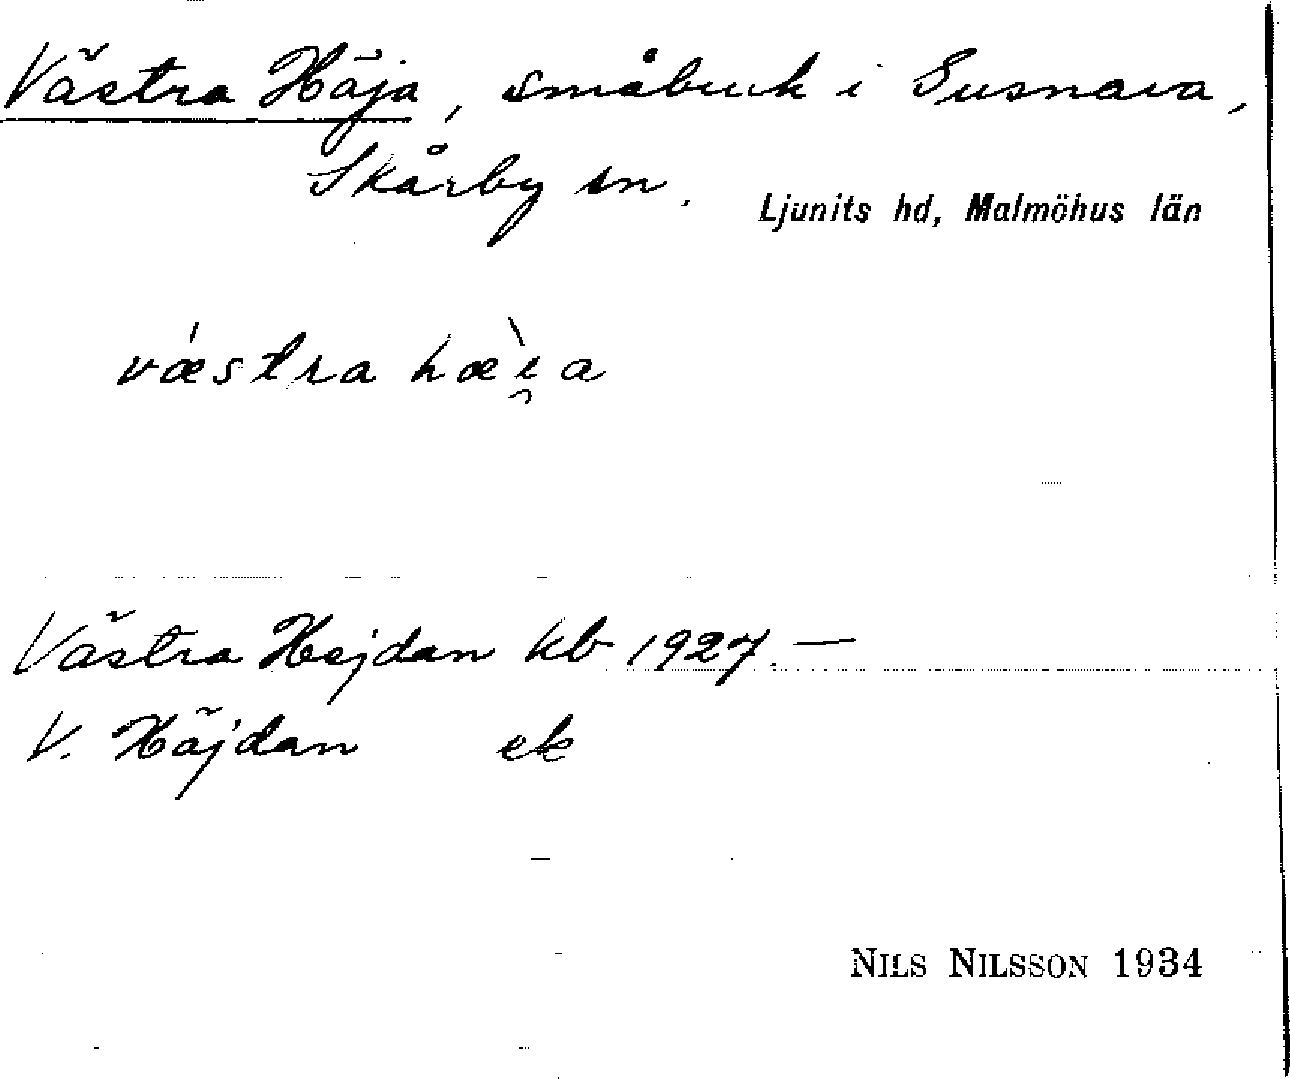 Västra Häja, småbruk i Susnava,
Skårby sn. Ljunits hd, Malmöhus län
vǽstra hæ̀i̯a
Västra Hejdan kb 1927. —
V. Häjdan ek
NILS NILSSON 1934